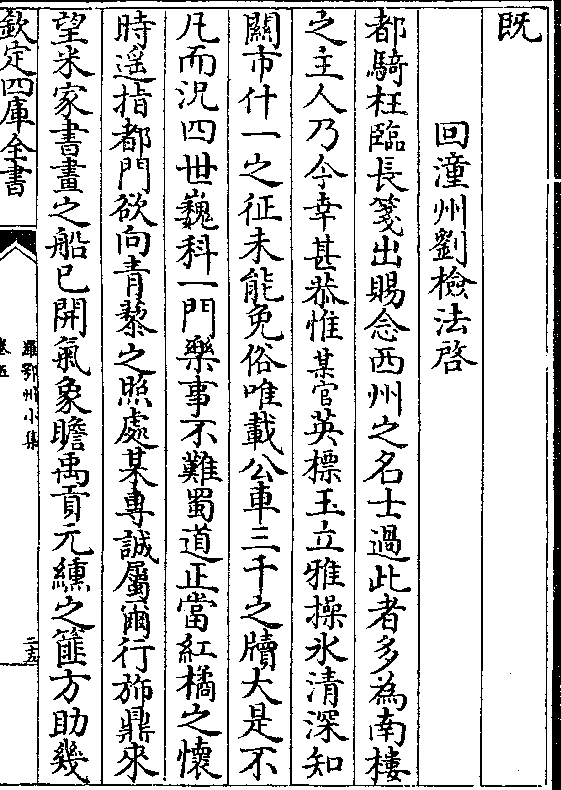 既
回潼州劉檢法啓
都騎枉臨長箋出賜念西州之名士過此者多為南樓
之主人乃今幸甚恭惟某官英標玉立雅操氷清深知
關市什一之征未能免俗唯載公車三千之牘大是不
凡而況四世巍科一門樂事不難蜀道正當紅橘之懷
時遥指都門欲向青藜之照處某專誠屬爾行斾鼎來
望米家書畫之船已開氣象瞻禹貢元纁之篚方助幾
欽定四庫全書
羅鄂州小集
卷五